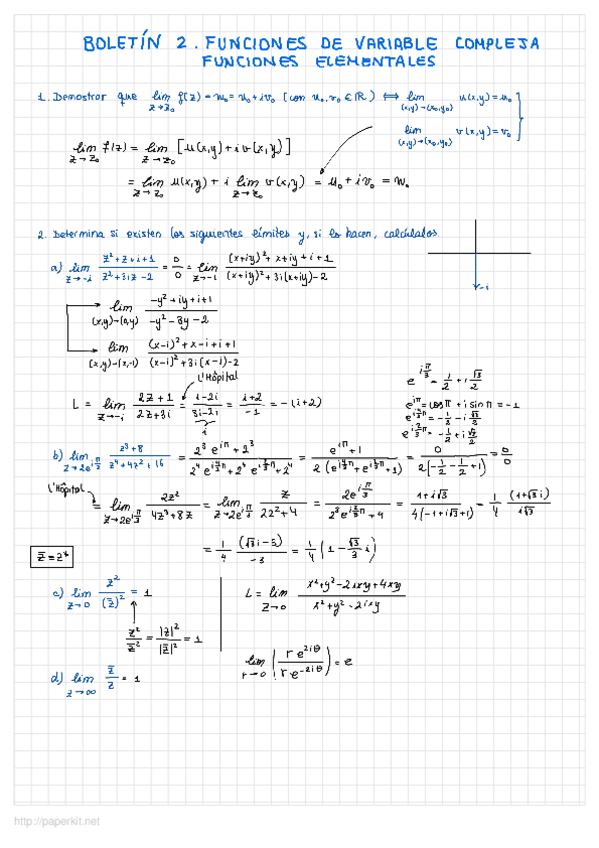 BOLETÍN 2. FUNCIONES DE VARIABLE COMPLEJA
FUNCIONES ELEMENTALES
1. Demostrar que lim z→z₀ f(z) = w₀ = u₀ + iv₀ (con u₀, v₀ ∈ ℝ) ⟺ lim (x,y)→(x₀,y₀) u(x,y) = u₀
lim (x,y)→(x₀,y₀) v(x,y) = v₀
lim z→z₀ f(z) = lim z→z₀ [u(x,y) + i v(x,y)]
= lim z→z₀ u(x,y) + i lim z→z₀ v(x,y) = u₀ + i v₀ = w₀
2. Determina si existen los siguientes límites y, si lo hacen, calcúlalos.
a) lim z→-i (z² + z + i + 1)/(z² + 3iz - 2) = 0/0 = lim z→-i ((x+iy)² + x + iy + i + 1)/((x+iy)² + 3i(x+iy) - 2)
-i
lim (x,y)→(0,y) (-y² + iy + i + 1)/(-y² - 3y - 2)
lim (x,y)→(x,-1) ((x-i)² + x - i + i + 1)/((x-i)² + 3i(x-i) - 2)
L'Hôpital
L = lim z→-i (2z + 1)/(2z + 3i) = (1 - 2i)/(3i - 2i) = (i + 2)/(-1) = -(i + 2)
i
e^{iπ/3} = 1/2 + i √3/2
e^{iπ} = cos π + i sin π = -1
b) lim z→2e^{iπ/3} (z³ + 8)/(z⁴ + 4z² + 16) = (2³ e^{iπ} + 2³)/(2⁴ e^{i4/3π} + 2⁴ e^{i2/3π} + 2⁴) = (e^{iπ} + 1)/(2(e^{i4/3π} + e^{i2/3π} + 1)) = 0/(2(-1/2 - 1/2 + 1)) = 0/0
L'Hôpital
= lim z→2e^{iπ/3} 3z²/(4z³ + 8z) = lim z→2e^{iπ/3} z/(2z² + 4) = 2e^{iπ/3}/(2³e^{i2/3π} + 4) = (1 + i√3)/(4(-1 + i√3 + 1)) = 1/4 (1 + √3 i)/(i√3)
= 1/4 (√3 i - 3)/(-3) = 1/4 (1 - √3/3 i)
z̄ = z*
c) lim z→0 z²/(z̄)² = 1
z²/z̄² = |z|²/|z̄|² = 1
L = lim z→0 (x² + y² - 2ixy + 4xy)/(x² + y² - 2ixy)
lim r→0 (r e^{2iθ}/r e^{-2iθ}) = e
d) lim z→∞ z̄/z = 1
http://paperkit.net